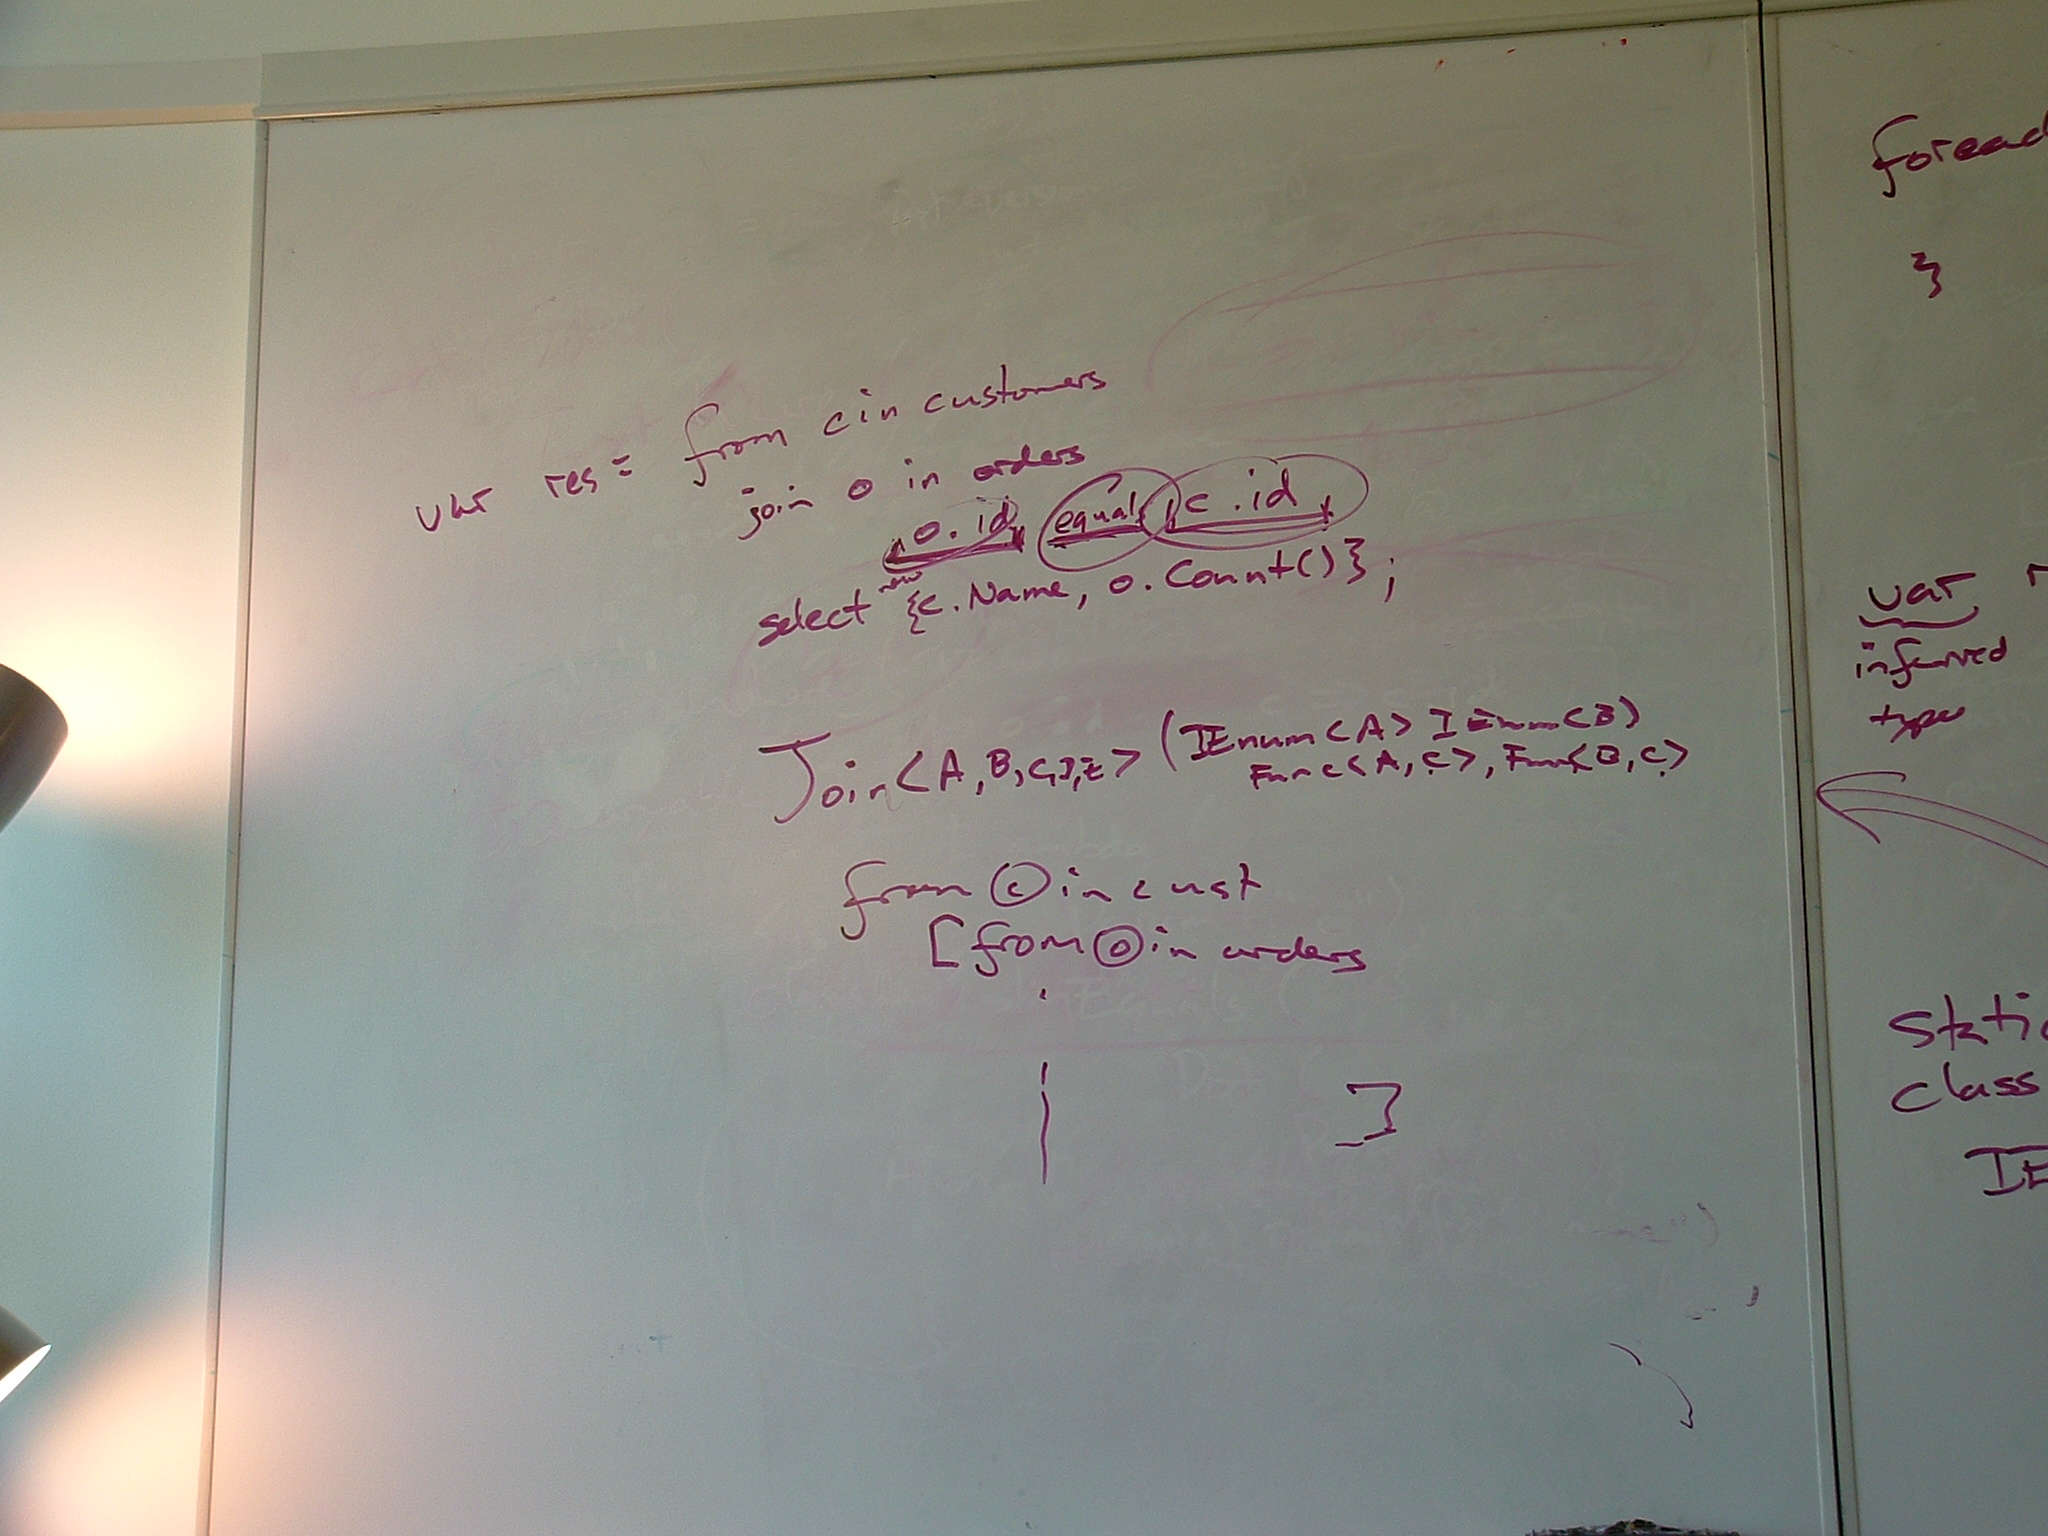 var res = from c in customers
join o in orders
o.id equals c.id
select new {c.Name, o.Count()};
Join<A, B, C, D, E> (IEnum<A> IEnum<B>)
Func<A, C>, Func<B, C>
from c in cust
[from o in orders
]
foreac
}
var r
inferred
type
static
class
IE